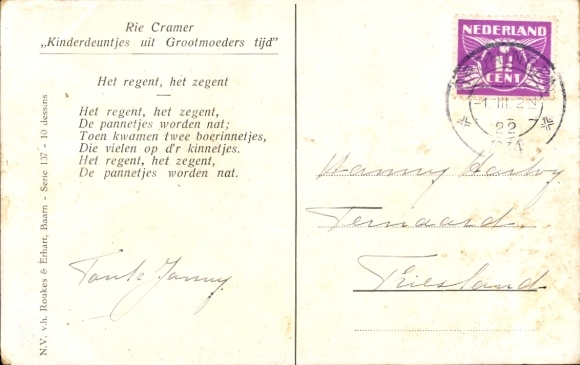 Rie Cramer
„Kinderdeuntjes uit Grootmoeders tijd"
Het regent, het zegent
Het regent, het zegent,
De pannetjes worden nat;
Toen kwamen twee boerinnetjes,
Die vielen op d'r kinnetjes.
Het regent, het zegent,
De pannetjes worden nat.
Tante Janny
N.V. v.h. Roukes & Erhart, Baarn - Serie 137 - 10 dessins
NEDERLAND
1½
CENT
1 III
22
1934
Hanny
Ternaard
Friesland